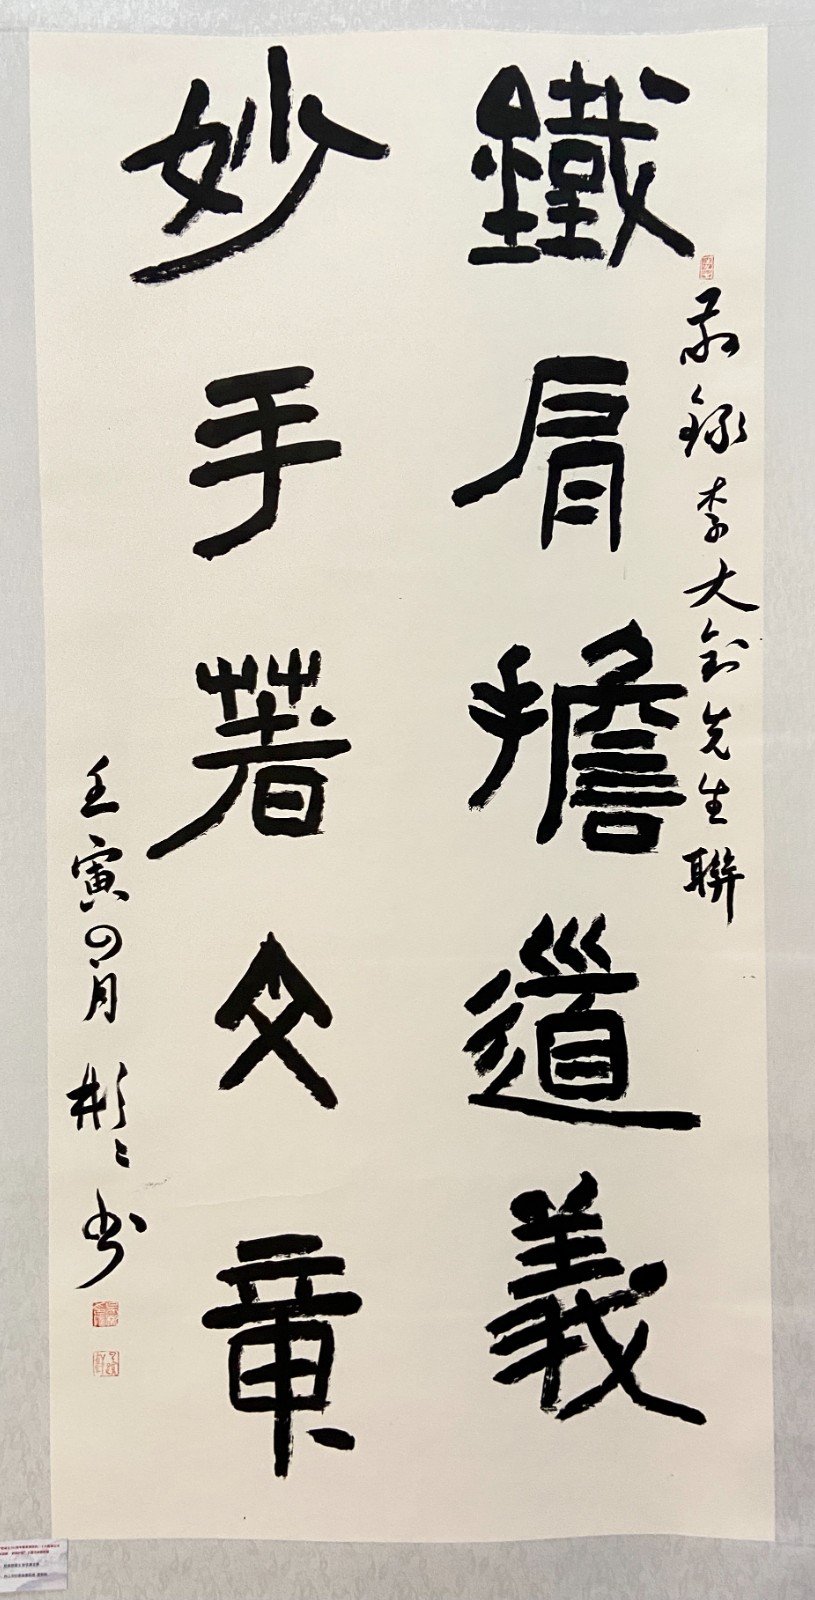 敬錄李大釗先生聯
鐵肩擔道義
妙手著文章
壬寅四月彬彬書